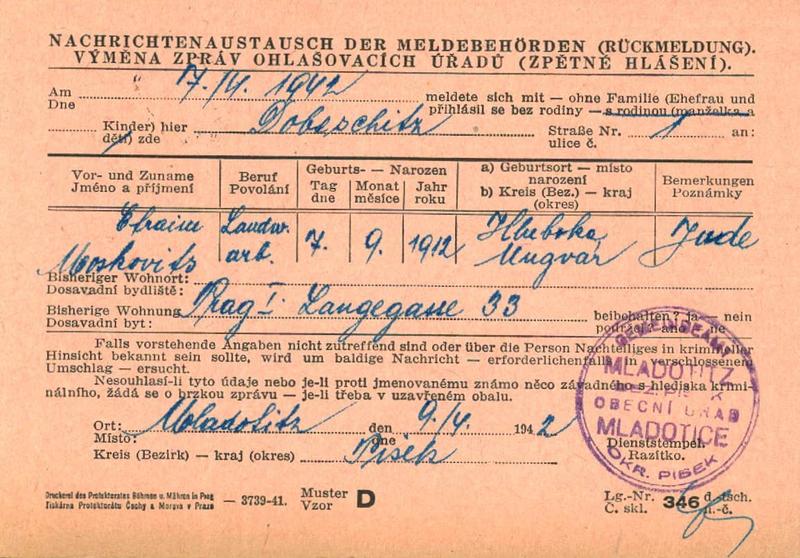 NACHRICHTENAUSTAUSCH DER MELDEBEHÖRDEN (RÜCKMELDUNG).
VÝMĚNA ZPRÁV OHLAŠOVACÍCH ÚŘADŮ (ZPĚTNÉ HLÁŠENÍ).
Am 7./4. 1942 meldete sich mit — ohne Familie (Ehefrau und
Dne přihlásil se bez rodiny — s rodinou (manželka a
Kinder) hier Dobeschitz Straße Nr. 1 an:
děti) zde ulice č.
Vor- und Zuname Beruf Geburts- — Narozen a) Geburtsort — místo Bemerkungen
Jméno a příjmení Povolání Tag Monat Jahr narození Poznámky
dne měsíce roku b) Kreis (Bez.) — kraj
(okres)
Efraim Landw. 7. 9. 1912 Hluboka Jude
Moskovits arb. Ungvár
Bisheriger Wohnort:
Dosavadní bydliště:
Bisherige Wohnung Prag I. Langegasse 33 beibehalten? ja — nein
Dosavadní byt: podržel? ano — ne
Falls vorstehende Angaben nicht zutreffend sind oder über die Person Nachteiliges in krimineller
Hinsicht bekannt sein sollte, wird um baldige Nachricht — erforderlichenfalls in verschlossenem
Umschlag — ersucht.
Nesouhlasí-li tyto údaje nebo je-li proti jmenovanému známo něco závadného s hlediska krimi-
nálního, žádá se o brzkou zprávu — je-li třeba v uzavřeném obalu.
Ort: Mladotitz den 9./4. 1942
Místo: dne
Kreis (Bezirk) — kraj (okres) Pisek
Dienststempel.
Razítko.
GEMEINDEAMT
MLADOTITZ
BEZ. PISEK
OBECNÍ ÚŘAD
MLADOTICE
OKR. PISEK
Druckerei des Protektorates Böhmen u. Mähren in Prag — 3739-41. Muster D Lg.-Nr. 346 d.-tsch.
Tiskárna Protektorátu Čechy a Morava v Praze Vzor Č. skl. n.-č.